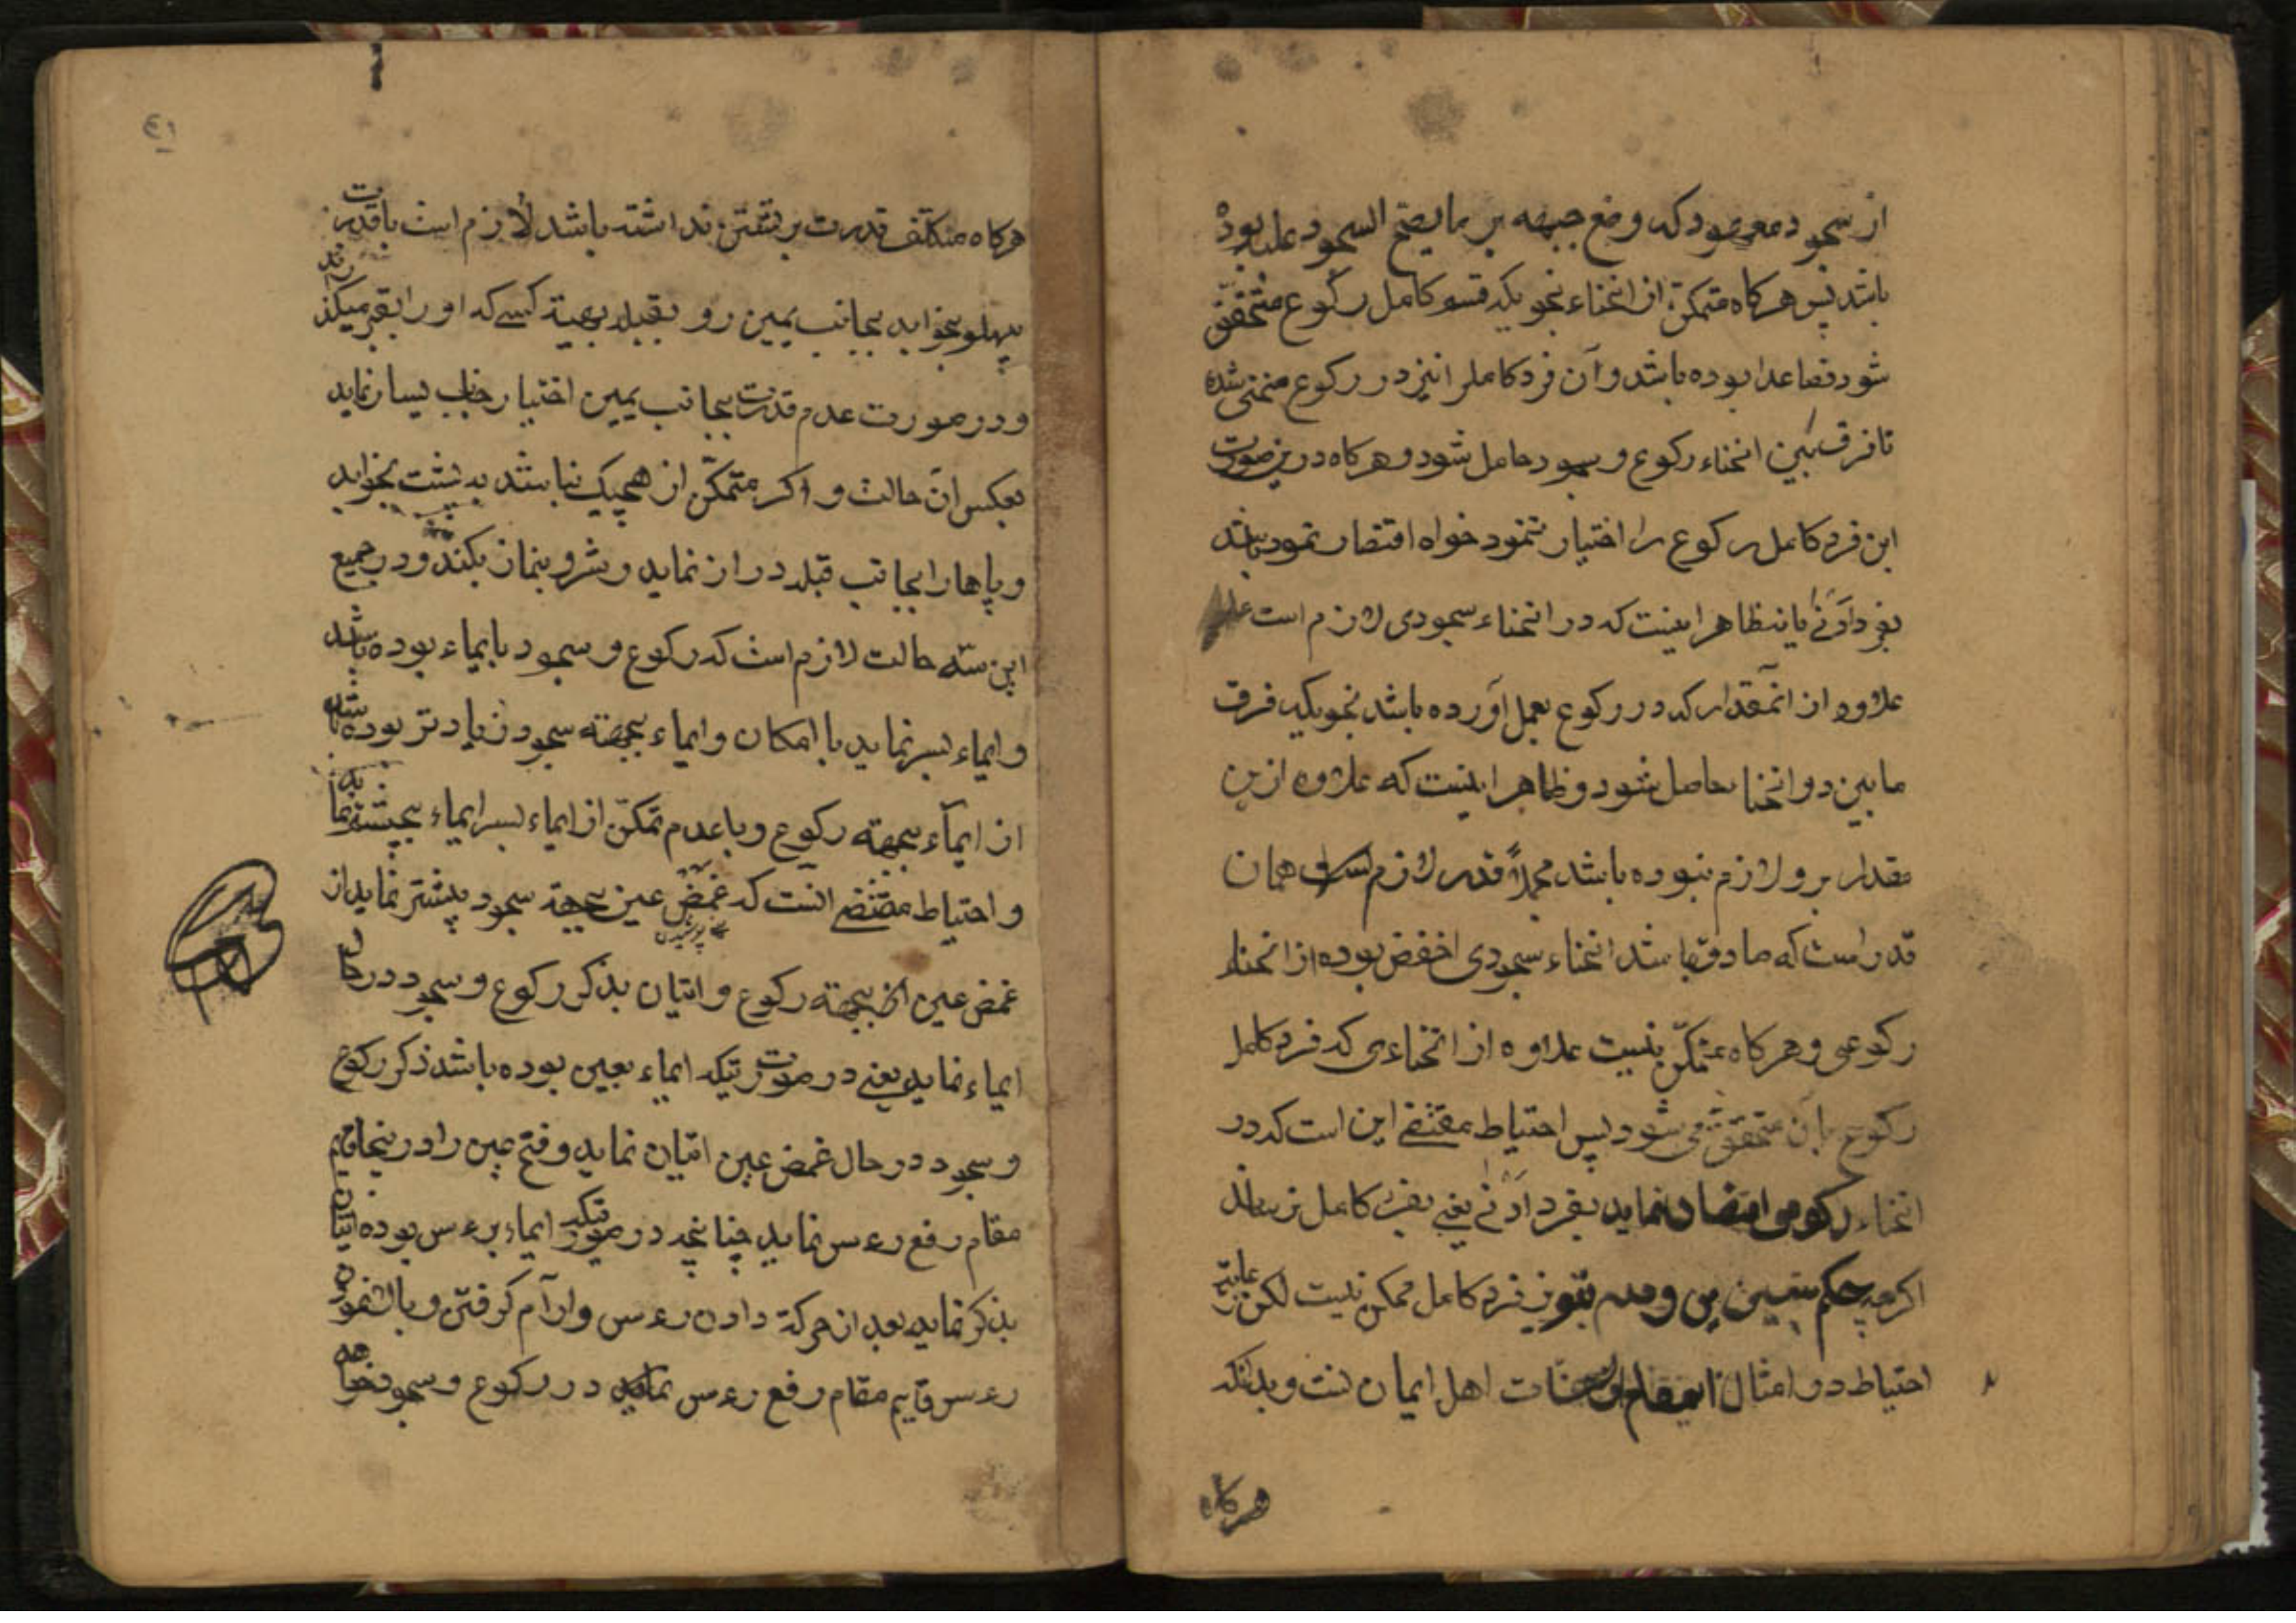 از سجود مقصود که وضع جبهه بر ما یصح السجود علیه بوده
باشد پس هرکاه متمکن از انحناء بنحویکه قسم کامل رکوع متحقق
شود فصاعدا بوده باشد و آن فرد کامل را نیز در رکوع منحنی شده
تا فرق بین انحناء رکوع و سجود حاصل شود و هرکاه درین صورت
این فرد کامل رکوع را اختیار ننمود خواه اقتصار نمود باشد
بفرد ادنی یا نه ظاهر اینست که در انحناء سجودی لازم است
علاوه از انمقدار که در رکوع بعمل آورده باشد بنحویکه فرق
ما بین دو انحنا حاصل شود و ظاهر اینست که علاوه ازین
مقدار برو لازم نبوده باشد مجملاً قدر لازم همان
قدر است که صادق باشد انحناء سجودی اخفض بوده از انحناء
رکوعی و هرکاه متمکّن نیست علاوه از انحناءی که فرد کامل
رکوع بآن متحقق می شود پس احتیاط مقتضی این است که در
انحناء رکوعی اقتصار نماید بفرد ادنی یعنی بفرد کامل نرساند
اکرچه حکم بتعین این و عدم تجویز فرد کامل ممکن نیست لکن رعایت
احتیاط در امثال اینمقام از اهل ایمان است و بدانکه
هرکاه
٤١
هرکاه مکلّف قدرت بر نشستن نداشته باشد لازم است با قدرت
بپهلو بخوابد بجانب یمین رو بقبله بهیئة کسیکه او را بقبر میکذارند
و در صورت عدم قدرت بجانب یمین اختیار جانب یسار نماید
بعکس آن حالت و اکر متمکّن از هیچیک نباشد به پشت بخوابد
و پاها را بجانب قبله دراز نماید و شروع بنماز بکند و در جمیع
این سه حالت لازم است که رکوع و سجود بایماء بوده باشد
و ایماء بسر نماید با امکان و ایماء بجهته سجود زیادتر بوده باشد
از ایمآء بجهته رکوع و با عدم تمکّن از ایماء بسر ایماء بچشم نماید
و احتیاط مقتضی انست که غمض عین بجهة سجود بیشتر نماید از
یعنی پوشیدن
غمض عین بجهته رکوع و اتیان بذکر رکوع و سجود در حال
ایماء نماید یعنی در صورتیکه ایماء بعین بوده باشد ذکر رکوع
و سجود در حال غمض عین اتیان نماید و فتح عین را در ینجا قایم
مقام رفع رءس نماید چنانچه در صورتیکه ایماء برءس بوده اتیان
بذکر نماید بعد از حرکة دادن رءس و ارآم کرفتن و بالا نمودن
رءس قایم مقام رفع رءس نماید در رکوع و سجود